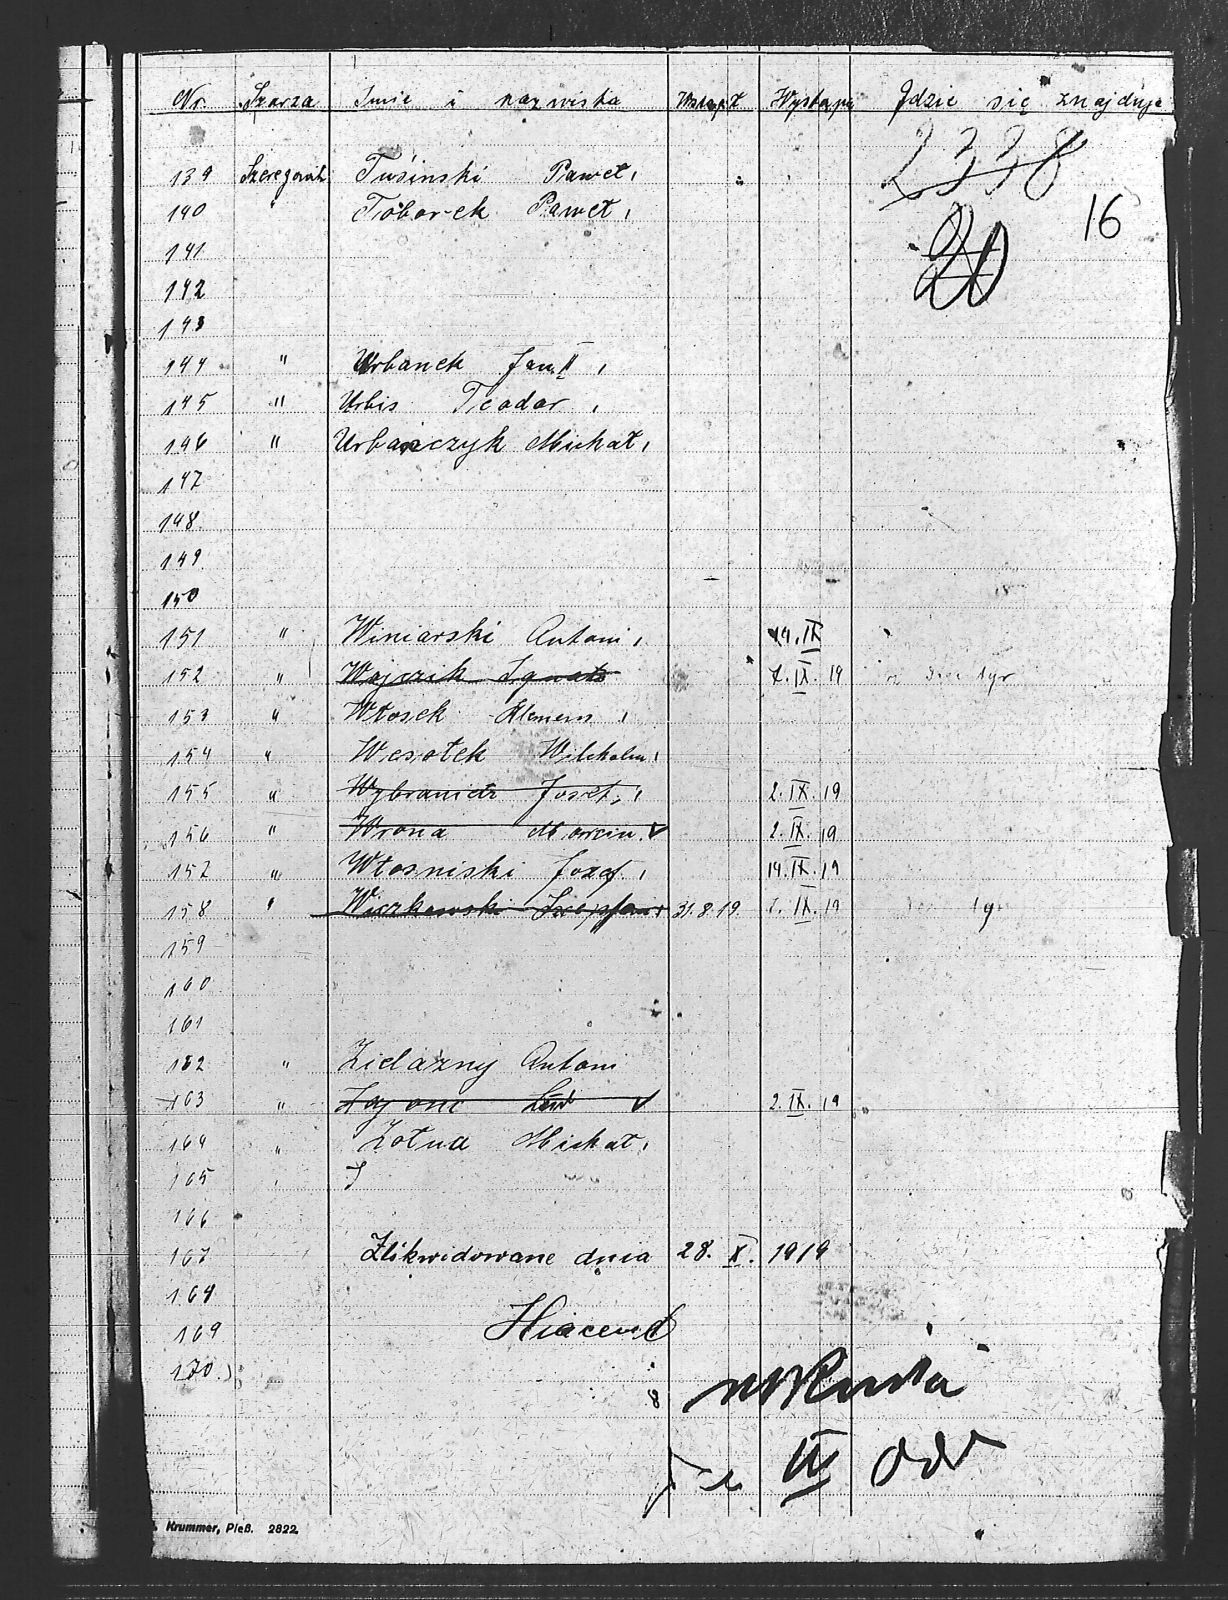 Nr. Szarza Imie i nazwiska Wstąpił Wystąpił Gdzie się znajduje
2338
139 Szeregowik Tusinski Paweł
140 " Toborek Paweł
16
20
141
142
143
144 " Urbanek Jan II
145 " Urbis Teodor
146 " Urbańczyk Michał
147
148
149
150
151 " Winiarski Antoni 14. IX
152 " Wojczik Ignatz 7. IX. 19
153 " Włosek Klemens
154 " Wesołek Wilchelm
155 " Józef 2. IX. 19
156 " Wrona Marcin 2. IX. 19
157 " Włosniski Jozef 14. IX. 19
158 " 31. 8. 19 IX. 19
159
160
161
162 " Zielazny Antoni
163 " Zajonc 2. IX. 19
164 " Zotna Michał
165
166
167 Zlikwidowane dnia 28. X. 1919
168
169
170
8
Krummer, Pleß. 2822